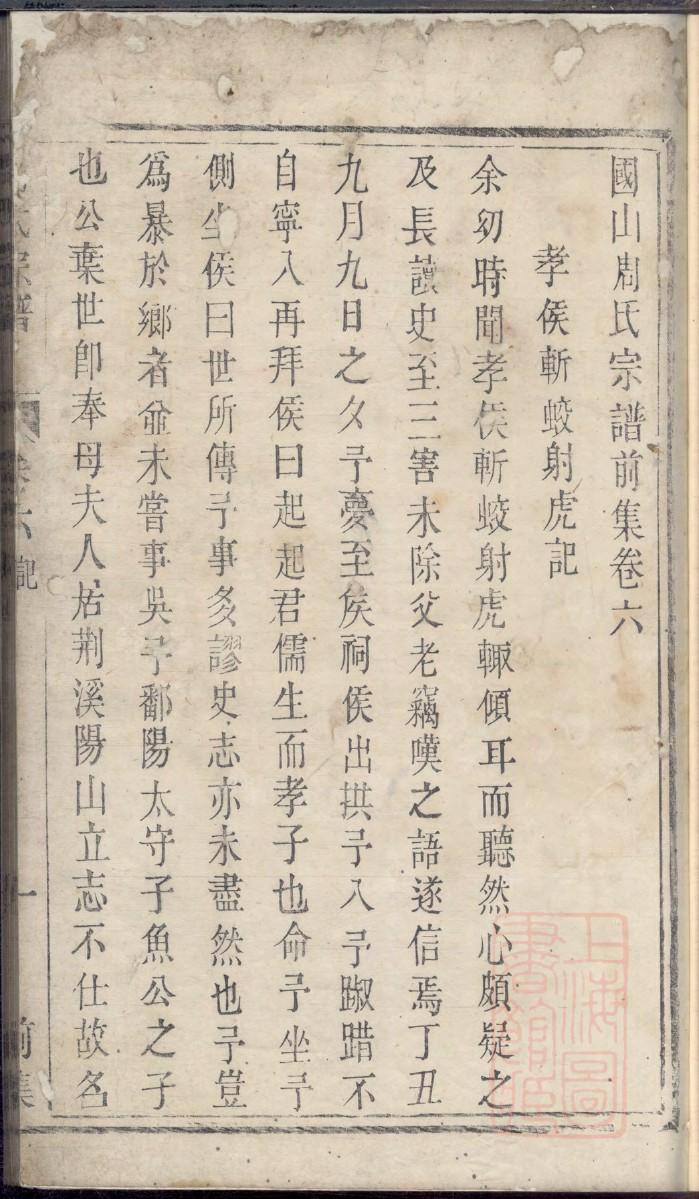 國山周氏宗譜前集卷六
孝侯斬蛟射虎記
余幼時聞孝侯斬蛟射虎輙傾耳而聽然心頗疑之
及長讀史至三害未除父老竊嘆之語遂信焉丁丑
九月九日之夕予夢至侯祠侯出拱予入予踧踖不
自寧入再拜侯曰起起君儒生而孝子也命予坐予
側坐侯曰世所傳予事多謬史志亦未盡然也予豈
爲暴於鄉者並未嘗事吳予鄱陽太守子魚公之子
也公棄世卽奉母夫人居荆溪陽山立志不仕故名
氏宗譜
卷六
記
一
前集
上海圖書館藏